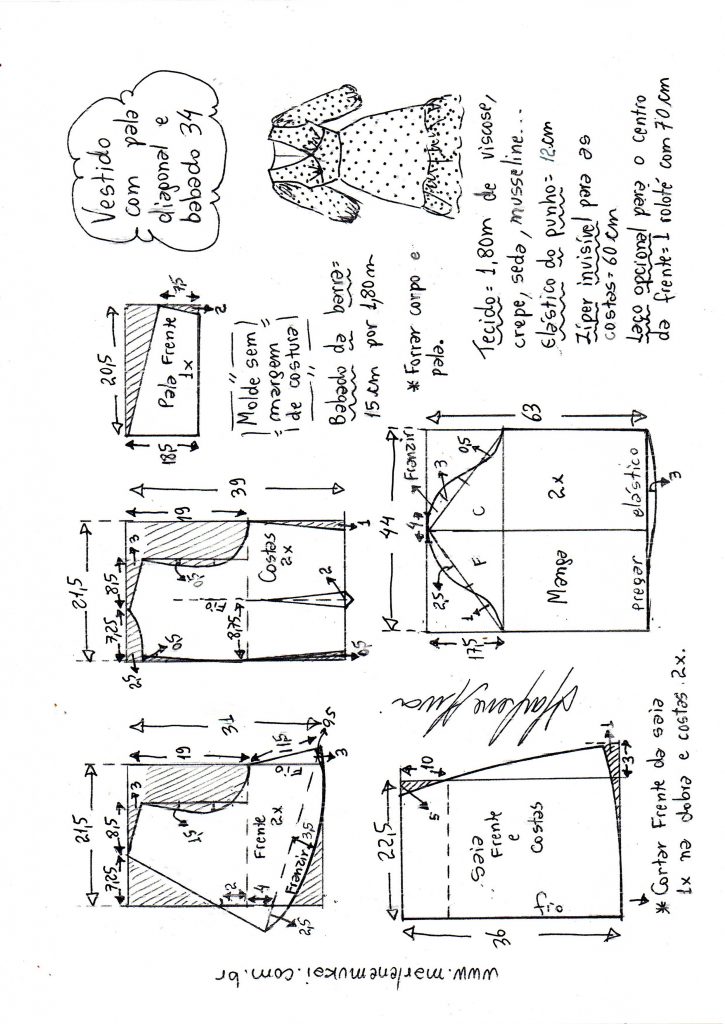 Vestido
com pala
diagonal e
babado 34
20,5
7,5
2
18,5
Pala Frente
1x
Molde sem
margem
de costura
Babado da barra=
15cm por 1,80m
* Forrar corpo e
pala.
Tecido = 1,80m de viscose,
crepe, seda, musseline...
Elástico do punho = 12cm
Zíper invisível para as
costas = 60cm
Laço opcional para o centro
da frente = 1 rolotê com 70cm
21,5
7,25
8,5
3
19
39
2,5
0,5
0,5
8,75
Fio
Costas
2x
1
2
0,5
21,5
7,25
8,5
3
19
31
1,5
Frente
2x
2
4
Franzir
3,5
2,5
Fio
11,5
9,5
3
44
4
Franzir
3
0,5
2,5
1
F
C
17,5
63
Manga
2x
pregar elástico
3
22,5
10
5
36
Saia
Frente
e
Costas
Fio
1
3
* Cortar Frente da saia
1x na dobra e costas 2x.
Marlene Mukai
www.marlenemukai.com.br